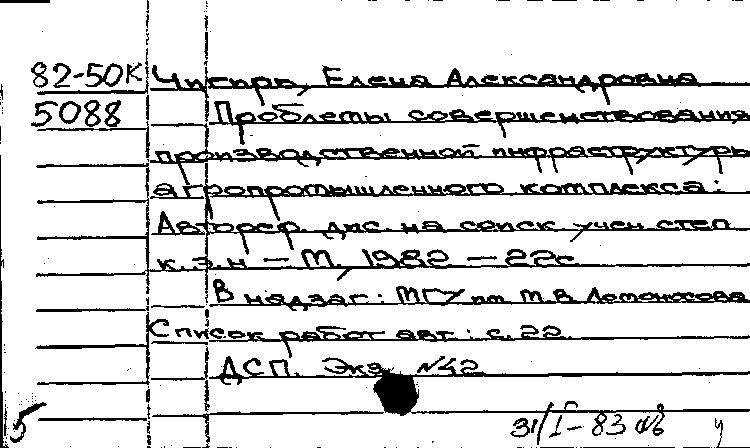 82-50К Чигирь, Елена Александровна
5088 Проблемы совершенствования
производственной инфраструктуры
агропромышленного комплекса:
Автореф. дис. на соиск. учен. степ.
к.э.н — М., 1982 — 22с
В надзаг: МГУ им М.В Ломоносова
Список работ авт.: с.22.
ДСП. Экз. №42
31/I-83
5